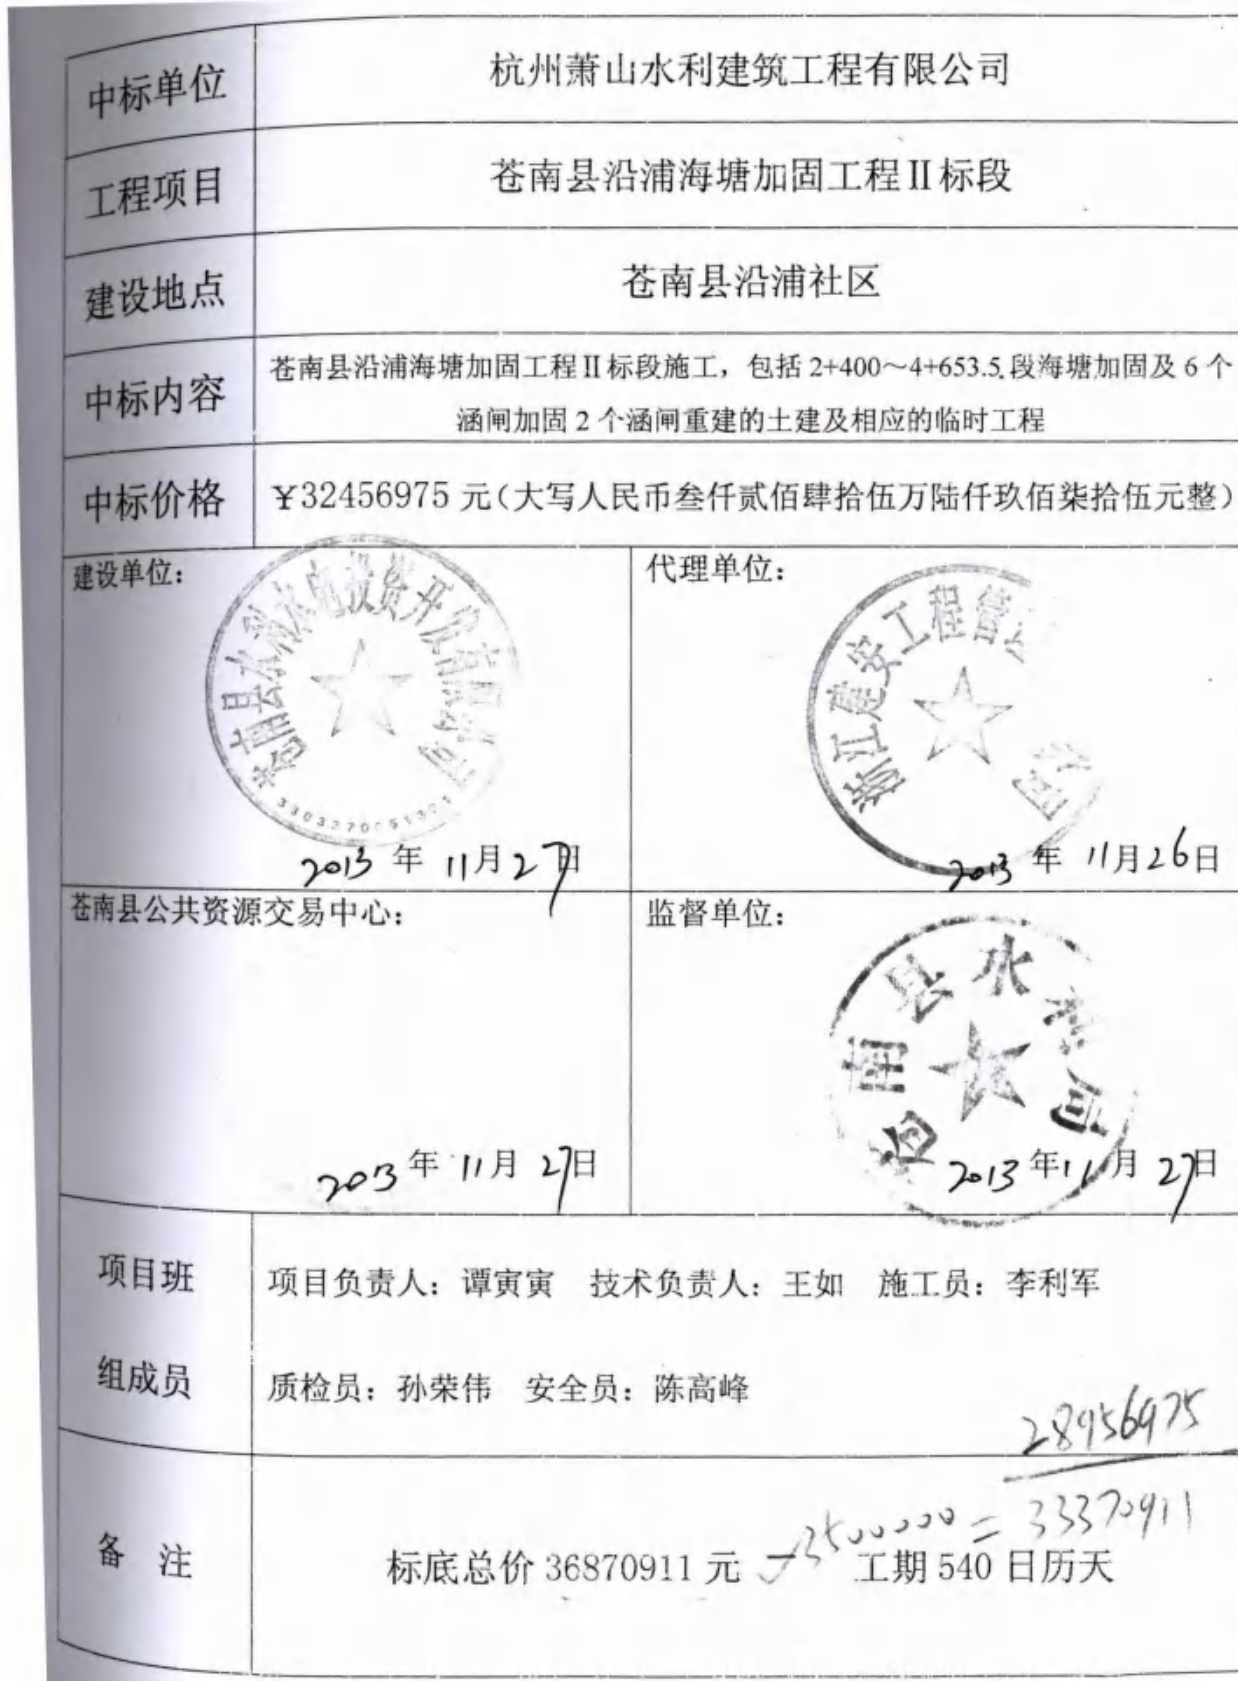 中标单位
杭州萧山水利建筑工程有限公司
工程项目
苍南县沿浦海塘加固工程Ⅱ标段
建设地点
苍南县沿浦社区
中标内容
苍南县沿浦海塘加固工程Ⅱ标段施工，包括 2+400～4+653.5 段海塘加固及 6 个
涵闸加固 2 个涵闸重建的土建及相应的临时工程
中标价格
¥32456975 元（大写人民币叁仟贰佰肆拾伍万陆仟玖佰柒拾伍元整）
建设单位：
苍南县水利水电投资开发有限公司
2013 年 11月27日
代理单位：
浙江建安工程管
司
2013 年 11月26日
苍南县公共资源交易中心：
2013 年 11月 27日
监督单位：
苍南县水利局
2013 年11月 27日
项目班
组成员
项目负责人：谭寅寅 技术负责人：王如 施工员：李利军
质检员：孙荣伟 安全员：陈高峰
28956975
备 注
-3500000 = 33370911
标底总价 36870911 元 工期 540 日历天